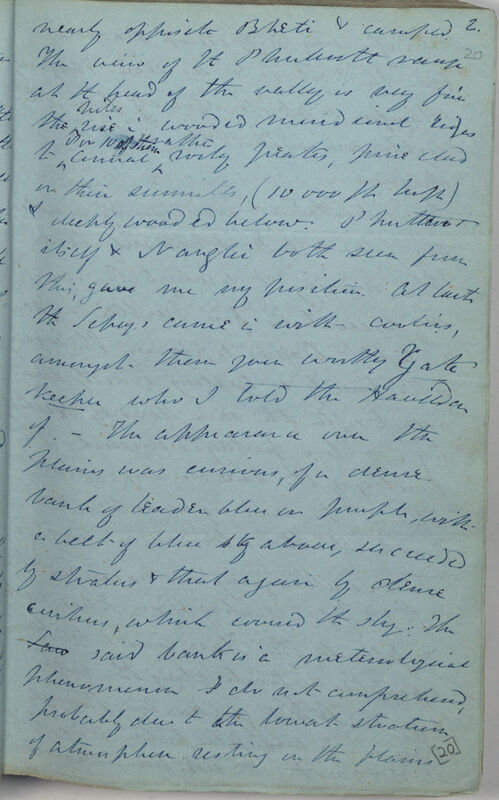 nearly opposite Bheti & camped 2.
20
The view of the Phulcott range
at the head of the valley is very fine
the hills rise in wooded ridges
5 or 10 of them
to conical rocky peaks, pine clad
on their summits, (10 000 ft high)
& deeply wooded below. Phulcott
itself & Nanglo both seen from
this, gave me my position. At last
the Sepoys came in with coolies,
amongst them your worthy Gate
keeper who I told the Havildar
of. – The appearance over the
plains was curious, of a dense
bank of leaden blue or purple, with
a belt of blue sky above, succeeded
by stratus & that again by dense
cirrhus, which covered the sky. The
said bank is a meteorological
phenomenon I do not comprehend,
probably due to the lowest stratum
of atmosphere resting on the plains
20